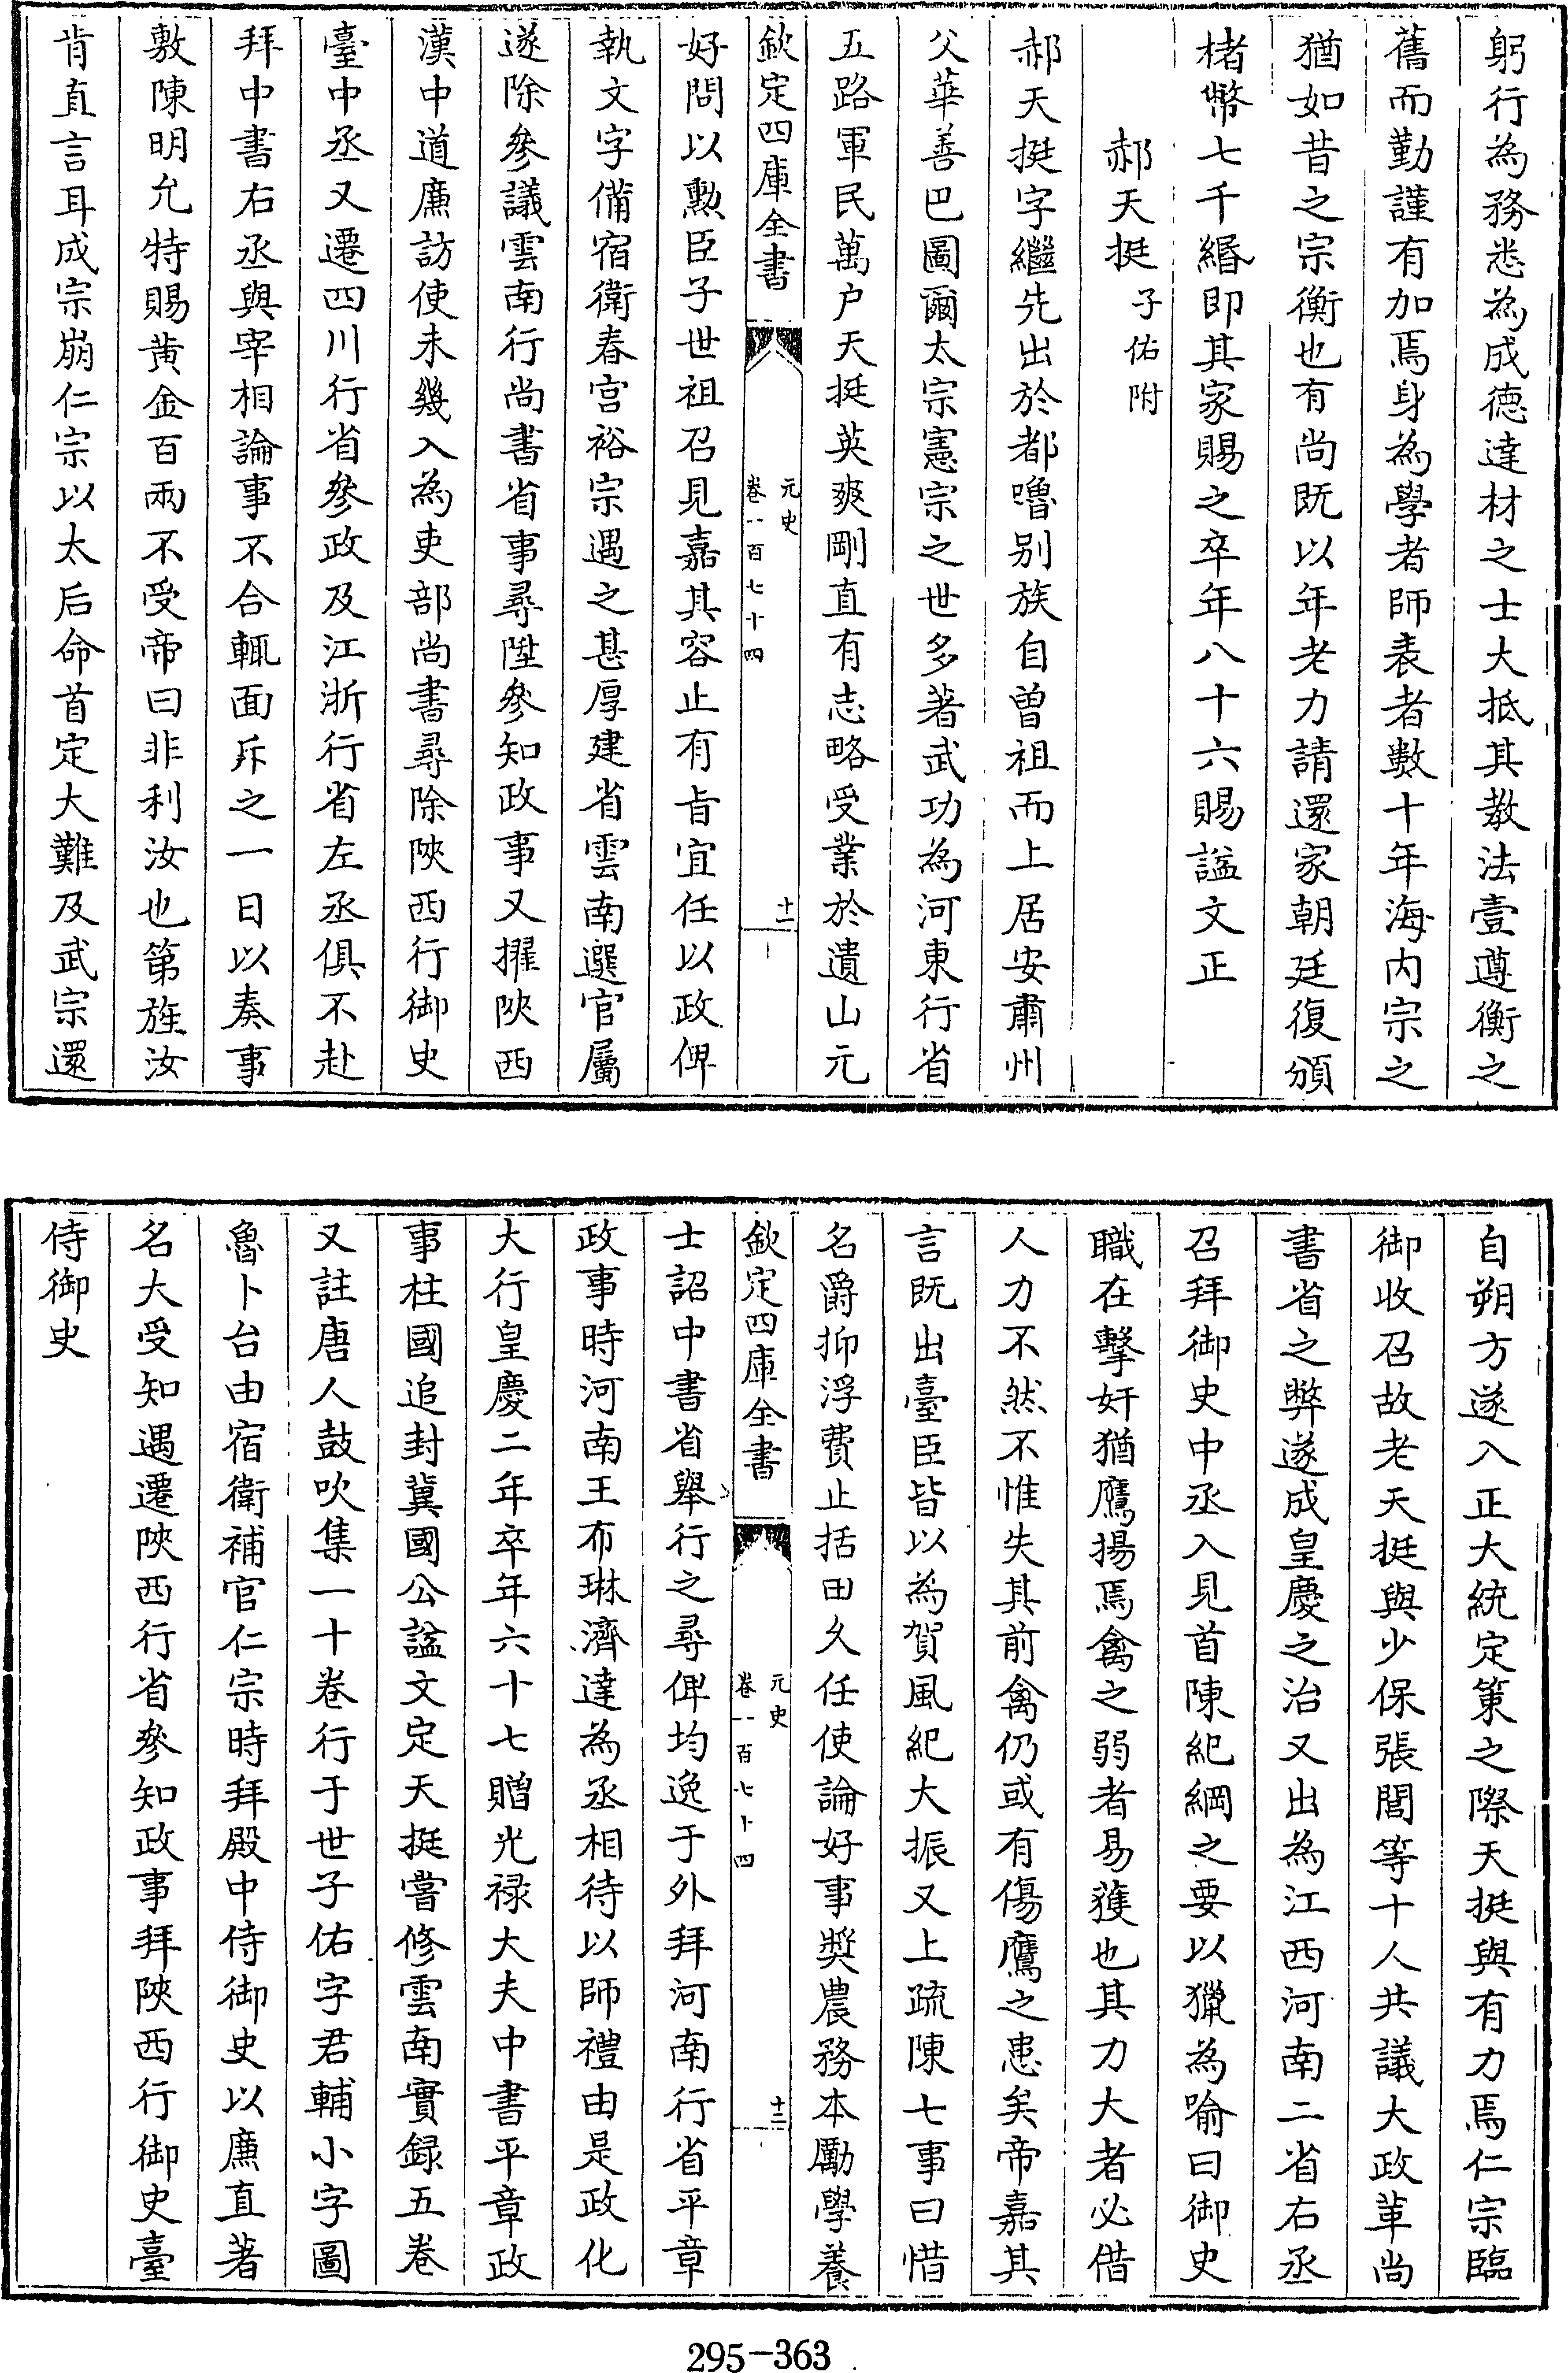 躬行為務悉為成德達材之士大抵其教法壹遵衡之
舊而勤謹有加焉身為學者師表者數十年海内宗之
猶如昔之宗衡也有尚既以年老力請還家朝廷復頒
楮幣七千緡即其家賜之卒年八十六賜諡文正
郝天挺子佑附
郝天挺字繼先出於都嚕别族自曽祖而上居安肅州
父華善巴圖爾太宗憲宗之世多著武功為河東行省
五路軍民萬户天挺英爽剛直有志略受業於遺山元
欽定四庫全書
元史
卷一百七十四
十一
好問以勲臣子世祖召見嘉其容止有㫖宜任以政俾
執文字備宿衛春宫裕宗遇之甚厚建省雲南選官屬
遂除參議雲南行尚書省事尋陞參知政事又擢陜西
漢中道廉訪使未幾入為吏部尚書尋除陜西行御史
臺中丞又遷四川行省參政及江浙行省左丞俱不赴
拜中書右丞與宰相論事不合輒面斥之一日以奏事
敷陳明允特賜黄金百兩不受帝曰非利汝也第旌汝
肯直言耳成宗崩仁宗以太后命首定大難及武宗還
自朔方遂入正大統定策之際天挺與有力焉仁宗臨
御收召故老天挺與少保張閭等十人共議大政革尚
書省之弊遂成皇慶之治又出為江西河南二省右丞
召拜御史中丞入見首陳紀綱之要以獵為喻曰御史
職在擊奸猶鷹揚焉禽之弱者易獲也其力大者必借
人力不然不惟失其前禽仍或有傷鷹之患矣帝嘉其
言既出臺臣皆以為賀風紀大振又上疏陳七事曰惜
名爵抑浮費止括田久任使論好事奬農務本勵學養
欽定四庫全書
元史
卷一百七十四
十二
士詔中書省舉行之尋俾均逸于外拜河南行省平章
政事時河南王布琳濟達為丞相待以師禮由是政化
大行皇慶二年卒年六十七贈光禄大夫中書平章政
事柱國追封冀國公諡文定天挺嘗修雲南實録五卷
又註唐人鼓吹集一十卷行于世子佑字君輔小字圖
魯卜台由宿衛補官仁宗時拜殿中侍御史以廉直著
名大受知遇遷陜西行省參知政事拜陜西行御史臺
侍御史
295-363